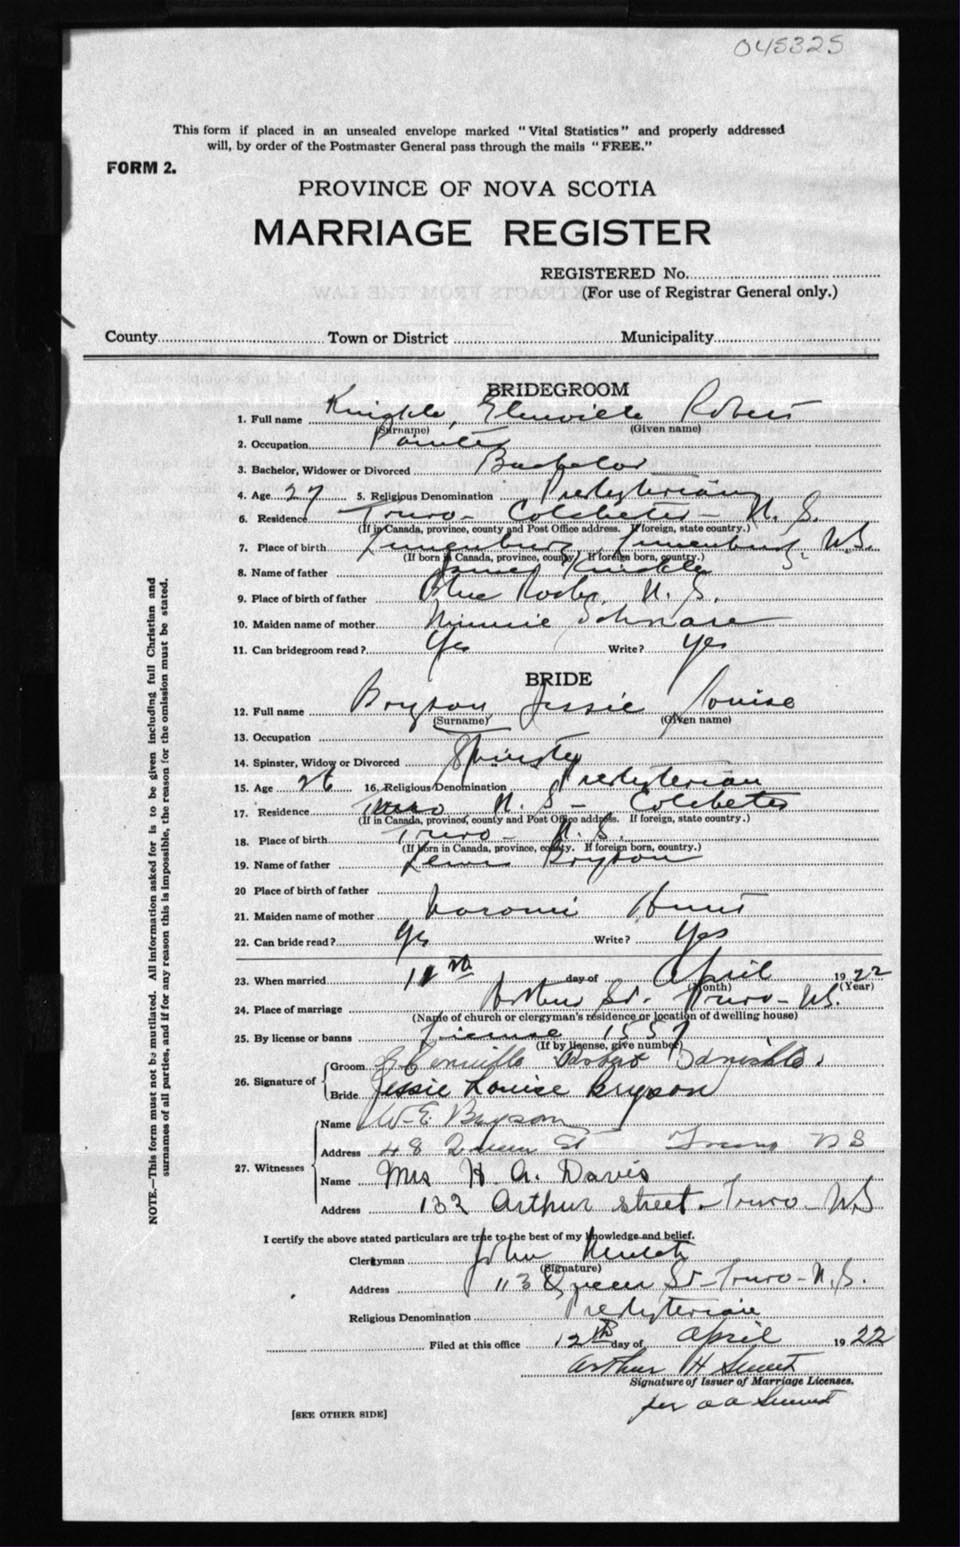 045325
This form if placed in an unsealed envelope marked "Vital Statistics" and properly addressed
will, by order of the Postmaster General pass through the mails "FREE."
FORM 2.
PROVINCE OF NOVA SCOTIA
MARRIAGE REGISTER
REGISTERED No.
(For use of Registrar General only.)
County Town or District Municipality
BRIDEGROOM
1. Full name Knickle, Glenville Robert
(Surname) (Given name)
2. Occupation Painter
3. Bachelor, Widower or Divorced Bachelor
4. Age 27 5. Religious Denomination Presbyterian
6. Residence Truro - Colchester - N. S.
(If in Canada, province, county and Post Office address. If foreign, state country.)
7. Place of birth Lunenburg, Lunenburg, N.S.
(If born in Canada, province, county. If foreign born, country.)
8. Name of father James Knickle
9. Place of birth of father Blue Rocks, N. S.
10. Maiden name of mother Minnie Schnare
11. Can bridegroom read? Yes Write? Yes
BRIDE
12. Full name Bryson Jessie Louise
(Surname) (Given name)
13. Occupation
14. Spinster, Widow or Divorced Spinster
15. Age 26 16. Religious Denomination Presbyterian
17. Residence Truro N. S - Colchester
(If in Canada, province, county and Post Office address. If foreign, state country.)
18. Place of birth Truro - N. S.
(If born in Canada, province, county. If foreign born, country.)
19. Name of father Lewis Bryson
20 Place of birth of father
21. Maiden name of mother Hunt
22. Can bride read? Yes Write? Yes
23. When married day of April 1922
(Month) (Year)
24. Place of marriage Arthur St. Truro - N.S.
(Name of church or clergyman's residence or location of dwelling house)
25. By license or banns License 1557
(If by license, give number)
26. Signature of
Groom Glenville Robert Knickle.
Bride Jessie Louise Bryson
27. Witnesses
Name W E Bryson
Address 48 Queen St Truro N S
Name Mrs H. A. Davis
Address 132 Arthur street - Truro - N.S
I certify the above stated particulars are true to the best of my knowledge and belief.
Clergyman John
(Signature)
Address 113 Queen St - Truro - N. S.
Religious Denomination Presbyterian
Filed at this office 12th day of April 1922
Arthur H
Signature of Issuer of Marriage Licenses.
per
[SEE OTHER SIDE]
NOTE.—This form must not be mutilated. All information asked for is to be given including full Christian and
surnames of all parties, and if for any reason this is impossible, the reason for the omission must be stated.